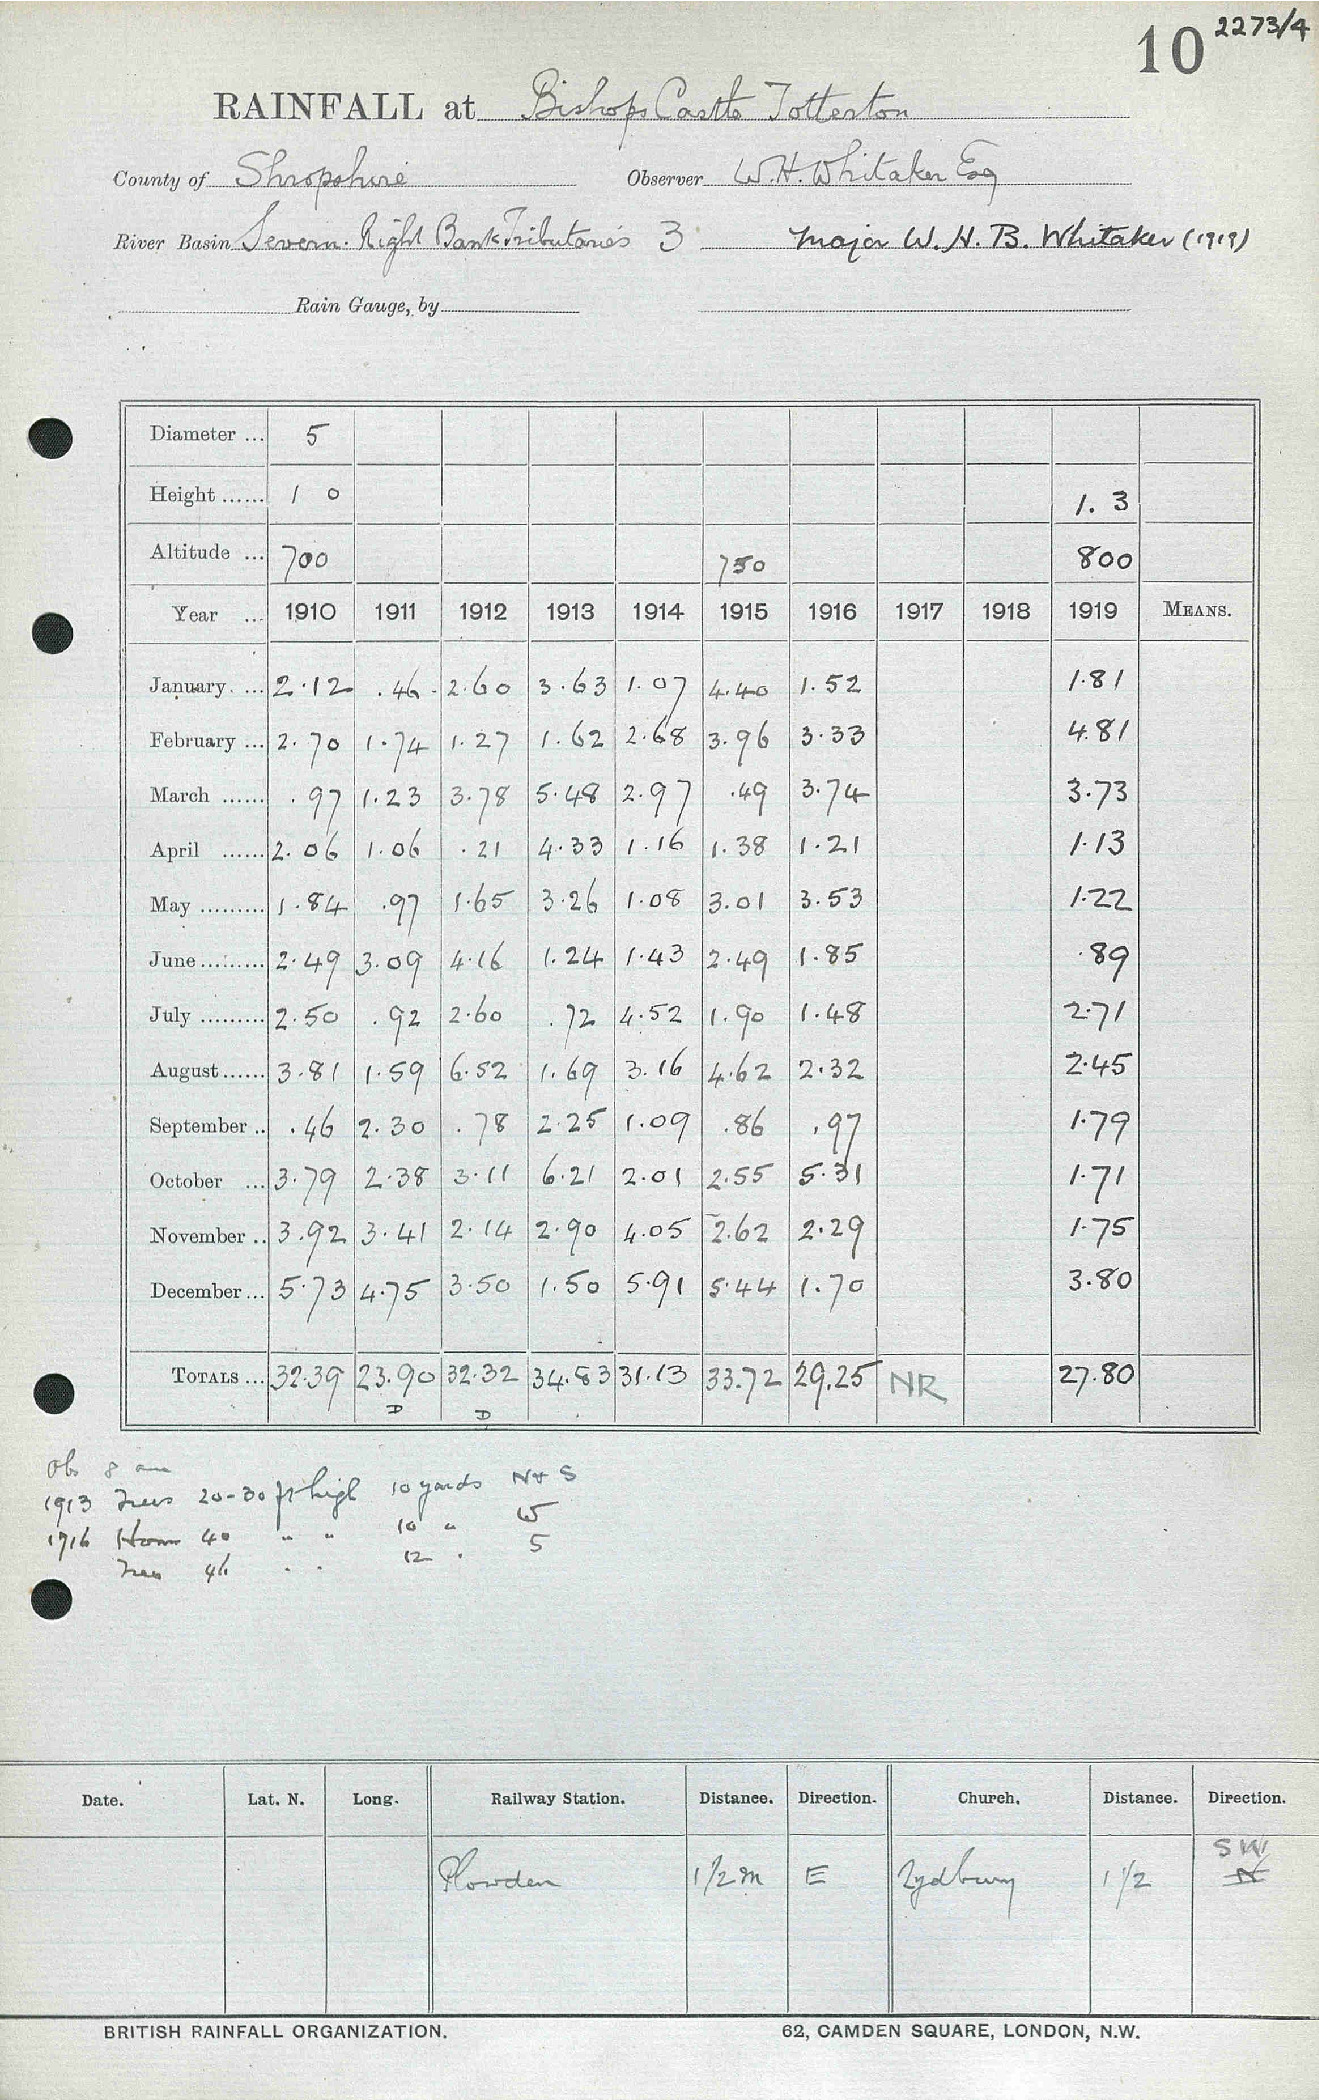 10 2273/4
RAINFALL at Bishops Castle Totterton
County of Shropshire Observer W.H. Whitaker Esq
River Basin Severn. Right Bank Tributaries 3 Major W. H. B. Whitaker (1919)
Rain Gauge, by
Diameter ... 5
Height ...... 1 0 1. 3
Altitude ... 700 750 800
Year ... 1910 1911 1912 1913 1914 1915 1916 1917 1918 1919 MEANS.
January. ... 2.12 .46 2.60 3.63 1.07 4.40 1.52 1.81
February ... 2.70 1.74 1.27 1.62 2.68 3.96 3.33 4.81
March ...... .97 1.23 3.78 5.48 2.97 .49 3.74 3.73
April ...... 2.06 1.06 .21 4.33 1.16 1.38 1.21 1.13
May ......... 1.84 .97 1.65 3.26 1.08 3.01 3.53 1.22
June ......... 2.49 3.09 4.16 1.24 1.43 2.49 1.85 .89
July ......... 2.50 .92 2.60 .72 4.52 1.90 1.48 2.71
August ...... 3.81 1.59 6.52 1.69 3.16 4.62 2.32 2.45
September .. .46 2.30 .78 2.25 1.09 .86 .97 1.79
October ... 3.79 2.38 3.11 6.21 2.01 2.55 5.31 1.71
November .. 3.92 3.41 2.14 2.90 4.05 2.62 2.29 1.75
December ... 5.73 4.75 3.50 1.50 5.91 5.44 1.70 3.80
TOTALS ... 32.39 23.90 32.32 34.83 31.13 33.72 29.25 NR 27.80
D D
Obs 8 am
1913 Trees 20-30 ft high 10 yards N & S
1916 House 40 " " 10 " W
Tree 46 " " 12 " S
Date. Lat. N. Long. Railway Station. Distance. Direction. Church. Distance. Direction.
SW
Plowden 1 1/2 m E Lydbury 1 1/2 N
BRITISH RAINFALL ORGANIZATION. 62, CAMDEN SQUARE, LONDON, N.W.